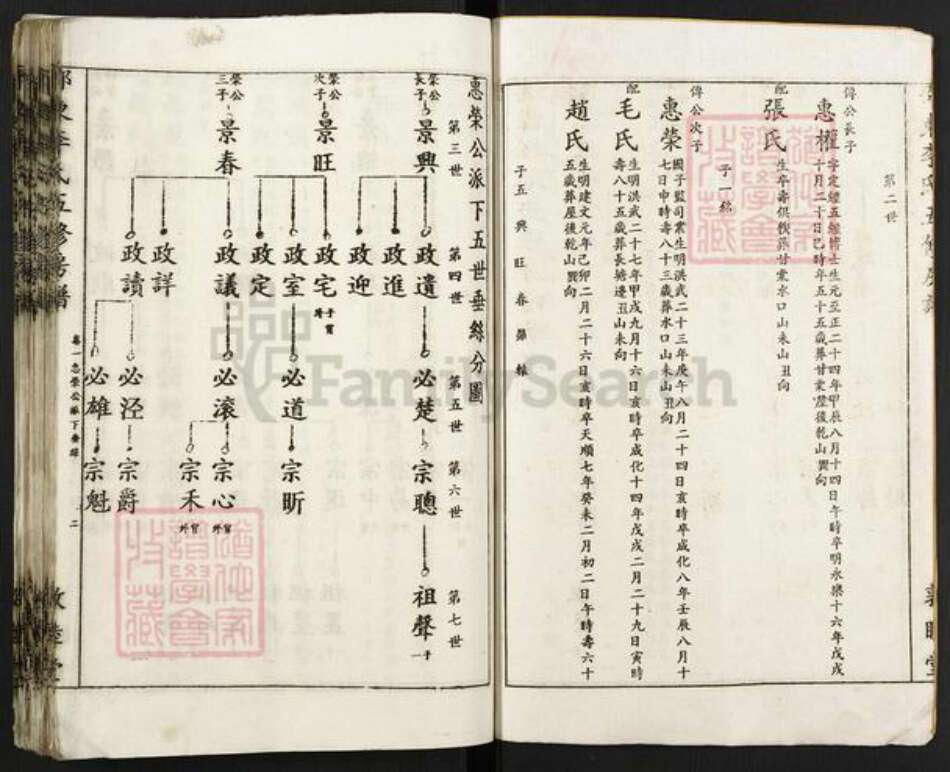 第二世
偉公長子
惠權
字定經五經博士生元至正二十四年甲辰八月十四日午時卒明永樂十六年戊戌
十月二十日巳時年五十五歲葬甘棠屋後乾山巽向
配
張氏
生卒壽俱佚葬甘棠水口山未山丑向
子一
偉公次子
惠榮
國子監司業生明洪武二十三年庚午八月二十四日亥時卒成化八年壬辰八月十
七日申時壽八十三歲葬水口山未山丑向
配
毛氏
生明洪武二十七年甲戌九月十六日亥時卒成化十四年戊戌二月二十九日寅時
壽八十五歲葬長塘邊丑山未向
趙氏
生明建文元年己卯二月二十六日亥時卒天順七年癸未二月初二日午時壽六十
五歲葬屋後乾山巽向
子五 興 旺 春
惠榮公派下五世垂絲分圖
第三世 第四世 第五世 第六世 第七世
榮公長子 景興
政遺 必楚 宗聰 祖聲 子一
政進
政迎
榮公次子 景旺
政宅
政室 必道 宗昕
政定
榮公三子 景春
政議 必滾 宗心
宗禾
政詳
政讀 必涇 宗爵
必雄 宗魁
李氏五修房譜
二
敦睦堂
FamilySearch